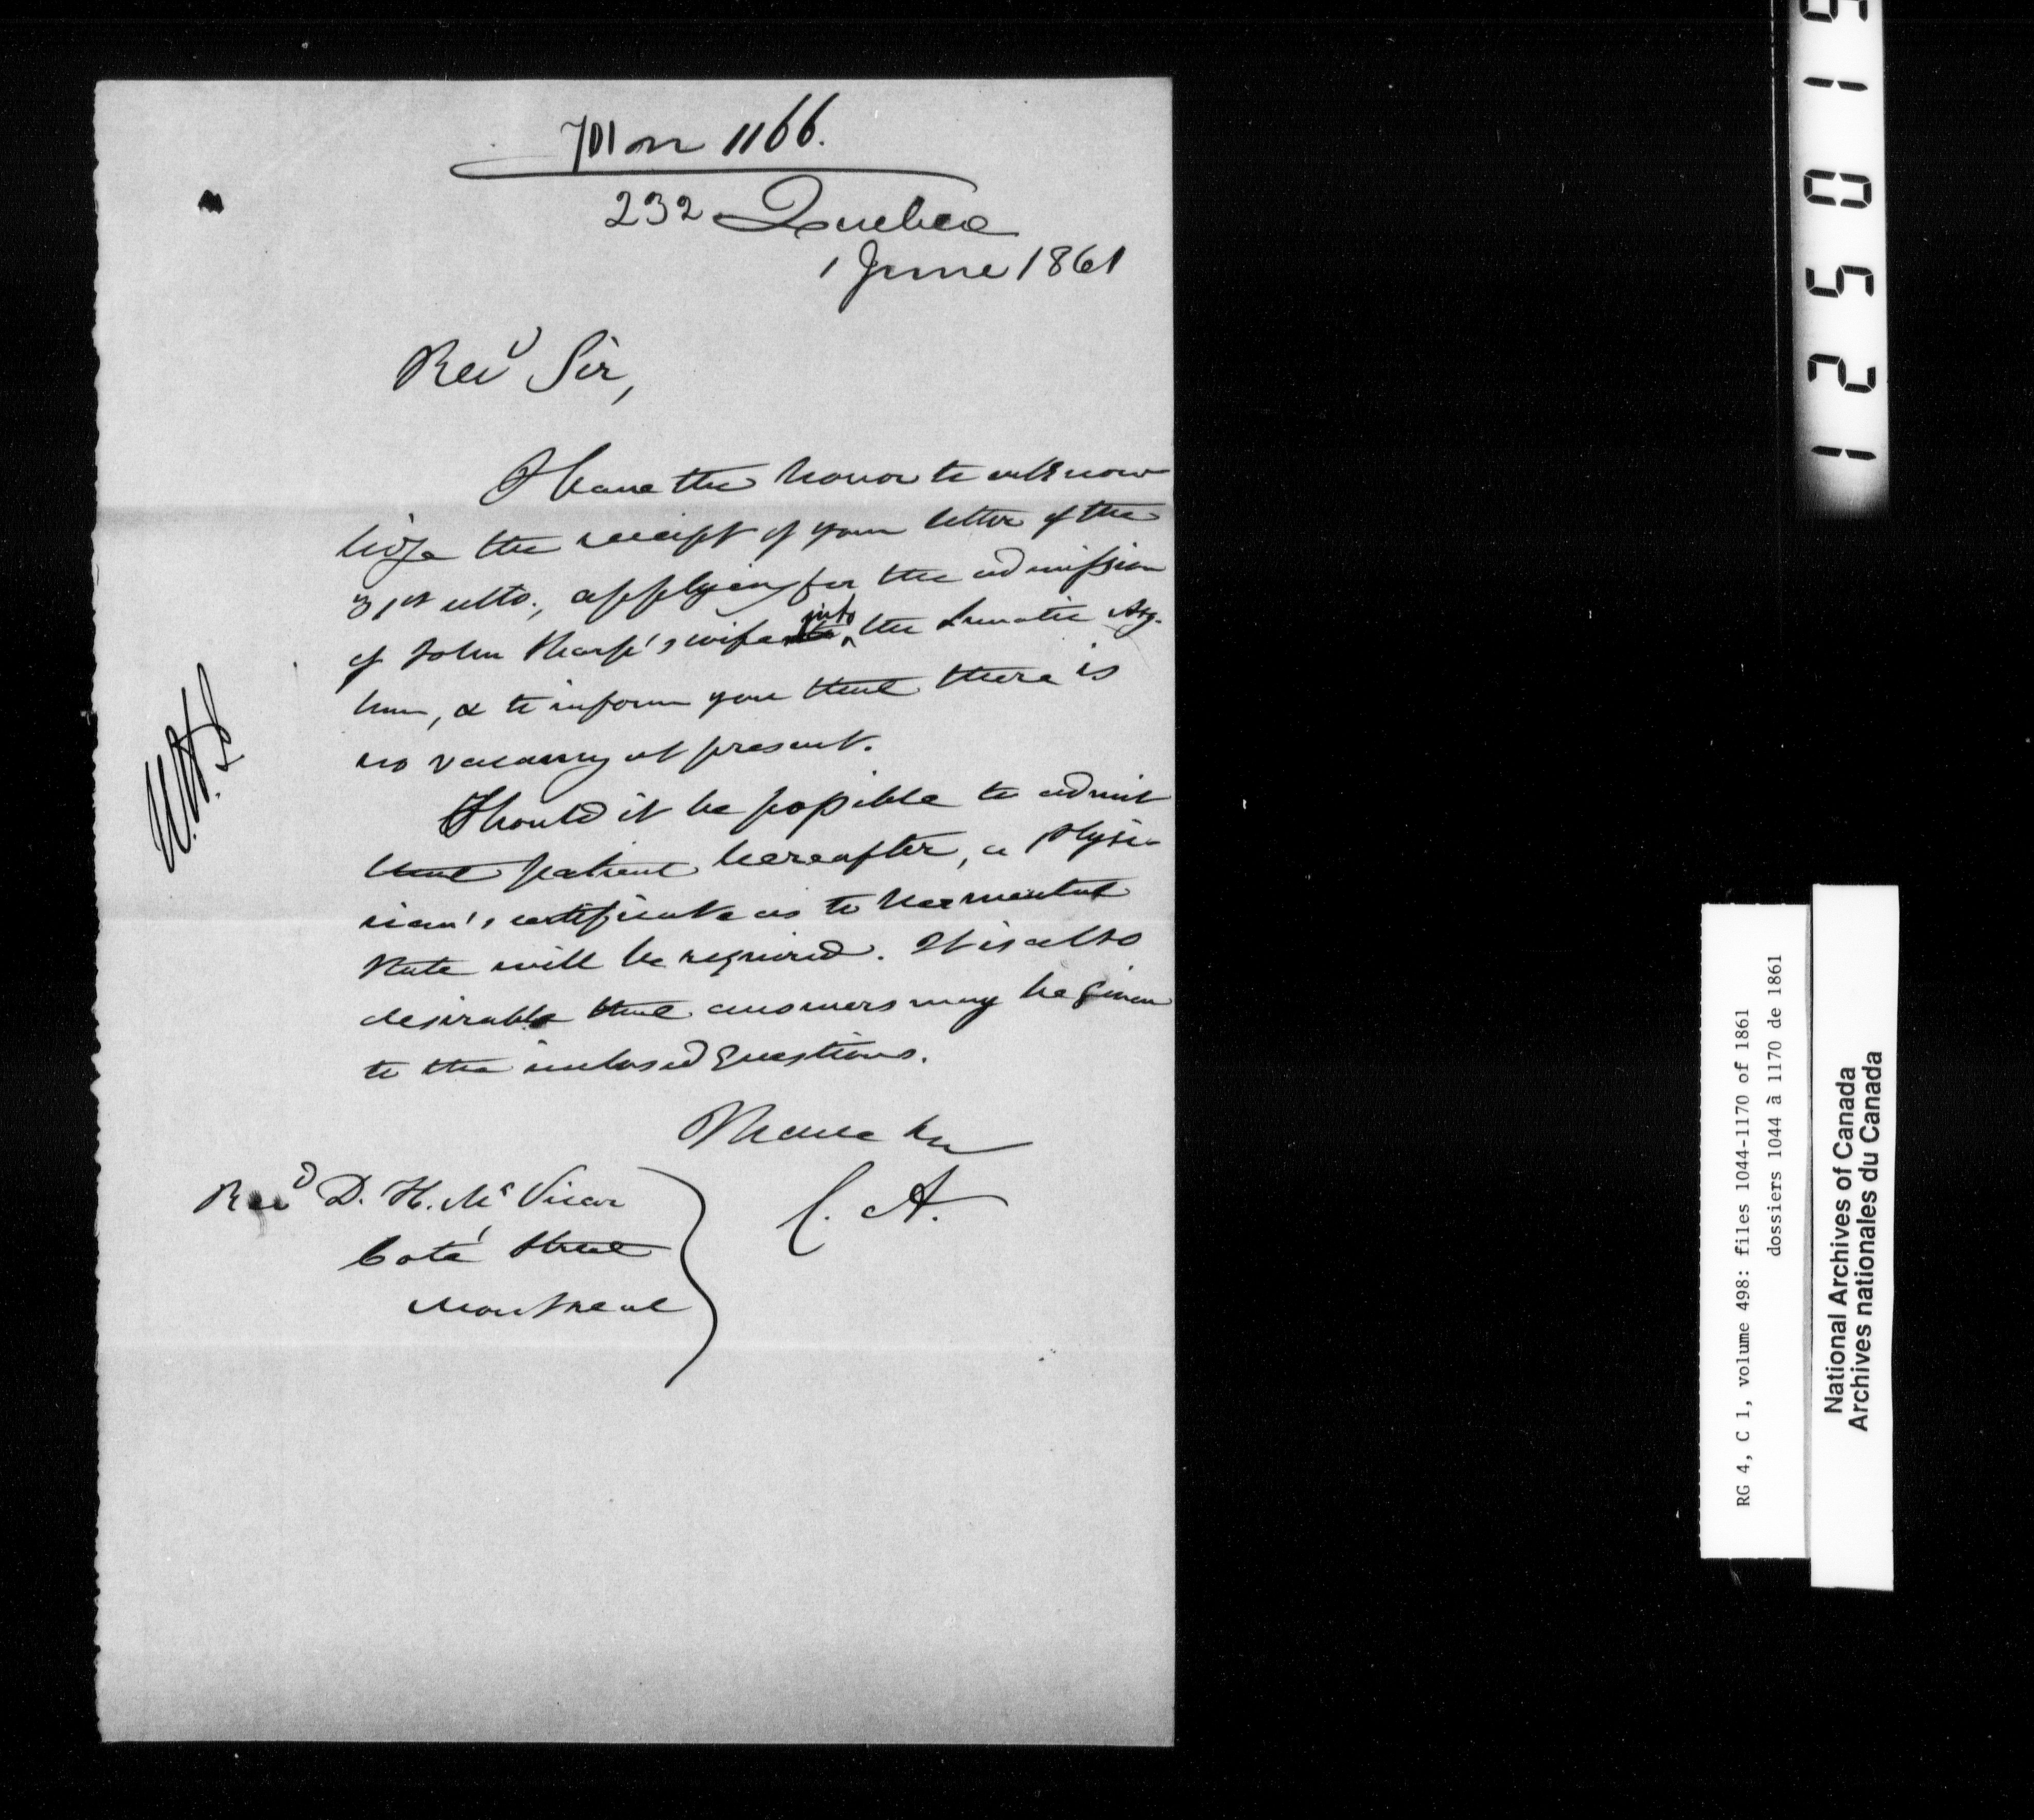 701 on 1166.
232 Quebec
1 June 1861
Revd Sir,
I have the honor to acknow
ledge the receipt of your letter of the
31st ulto., applying for the admission
of John Tharp's wife into the Lunatic Asy-
lum, & to inform you that there is
no vacancy at present.
Should it be possible to admit
that patient hereafter, a Physi-
cian's certificate as to her mental
state will be required. It is also
desirable that answers may be given
to the inclosed questions.
I have &c
C. A.
Revd D. H. McVicar
Coté Street
Montreal
RG 4, C 1, volume 498: files 1044-1170 of 1861
dossiers 1044 à 1170 de 1861
National Archives of Canada
Archives nationales du Canada
125015